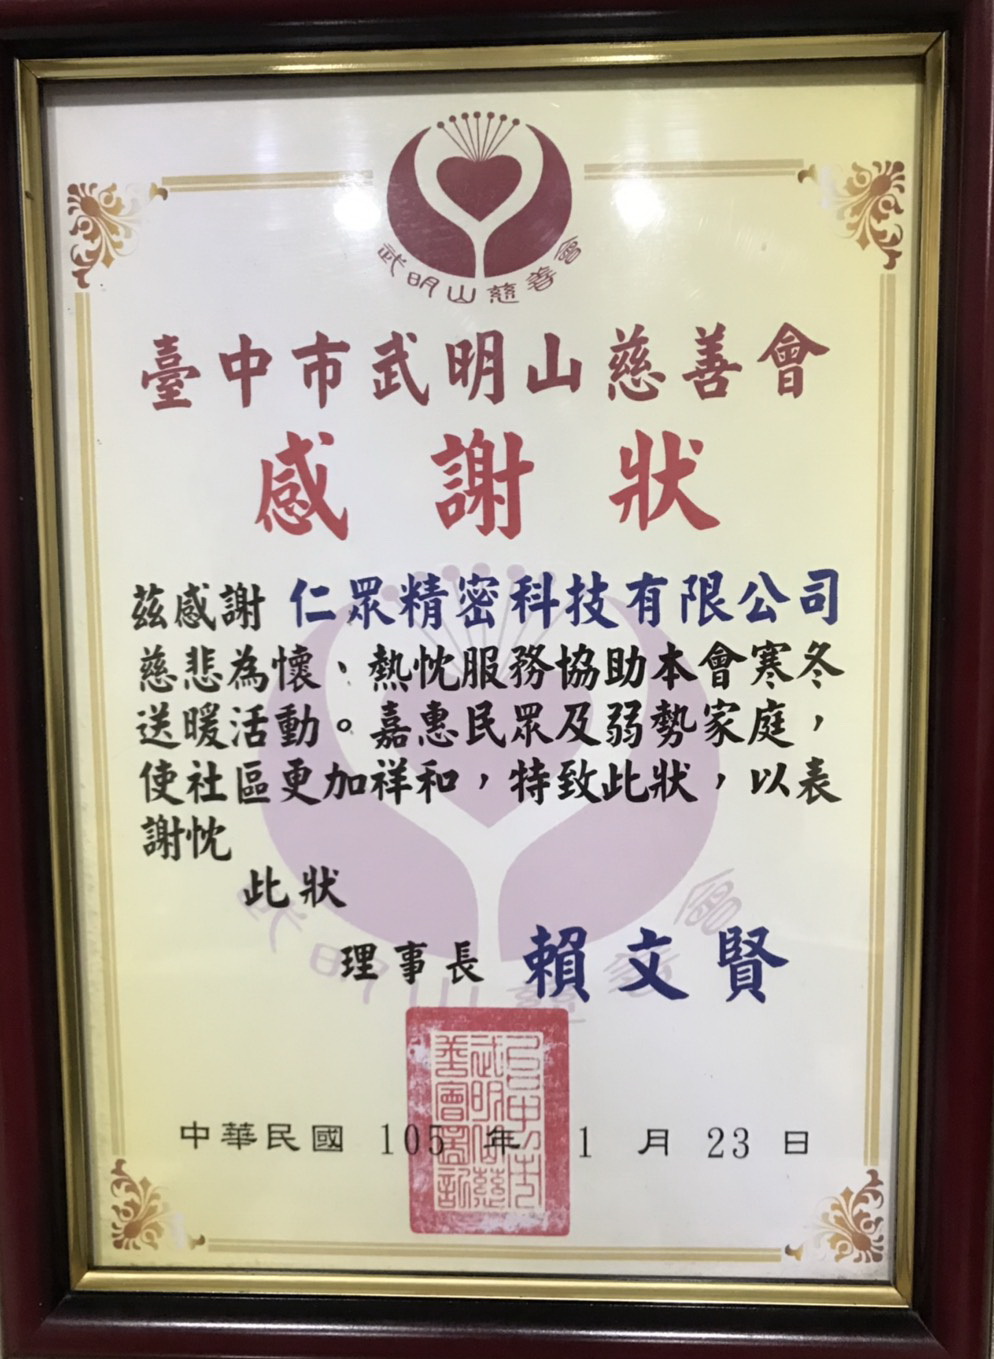 武明山慈善會
臺中市武明山慈善會
感謝狀
茲感謝 仁眾精密科技有限公司
慈悲為懷、熱忱服務協助本會寒冬
送暖活動。嘉惠民眾及弱勢家庭，
使社區更加祥和，特致此狀，以表
謝忱
此狀
理事長 賴文賢
中華民國 105 年 1 月 23 日